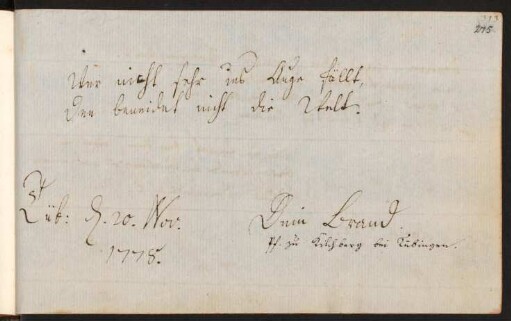 275.
Wer nicht sehr ins Auge fällt,
Den beneidet nicht die Welt.
Tüb: d. 20. Nov.
1778.
Dein Brand.
Pf. zu Kilchberg bei Tübingen.